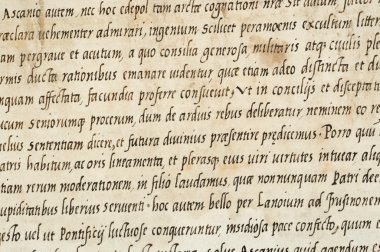 Ascanio autem, nec hoc edepol tam arctæ cognationi nræ Sit datum, facet
æclara vchementer admirari, ingenium scilicet peramoenis excultum litter
tam pergraue et acutum, a quo consilia generosa militaris atq; ciuilis ple
rmis ducta rationibus emanare uidentur, quæ etiam adeo distincta et di
nquam affectata, facundia proferre consueuit, Vt in concilijs et disceptat
ucum Seniorumq; procerum, dum de arduis rebus deliberatur neminem co re
elius Sententiam dicere, et futura diuinius præsentire prędicemus. Porro qui
atris habitum, ac oris lineamenta, et plerasq; eius viri vertutes intueor aliq
tiam rerum moderationem, in filio laudamus, quæ nonnunquam Patri dee
upiditatibus liberius seruienti. hoc autem bello per Lanoium ad Frusenonem
esto uel ut Pontificij luctuose conqueruntur, insidiosa pace confecto, quum e
Ascanius quid agendum